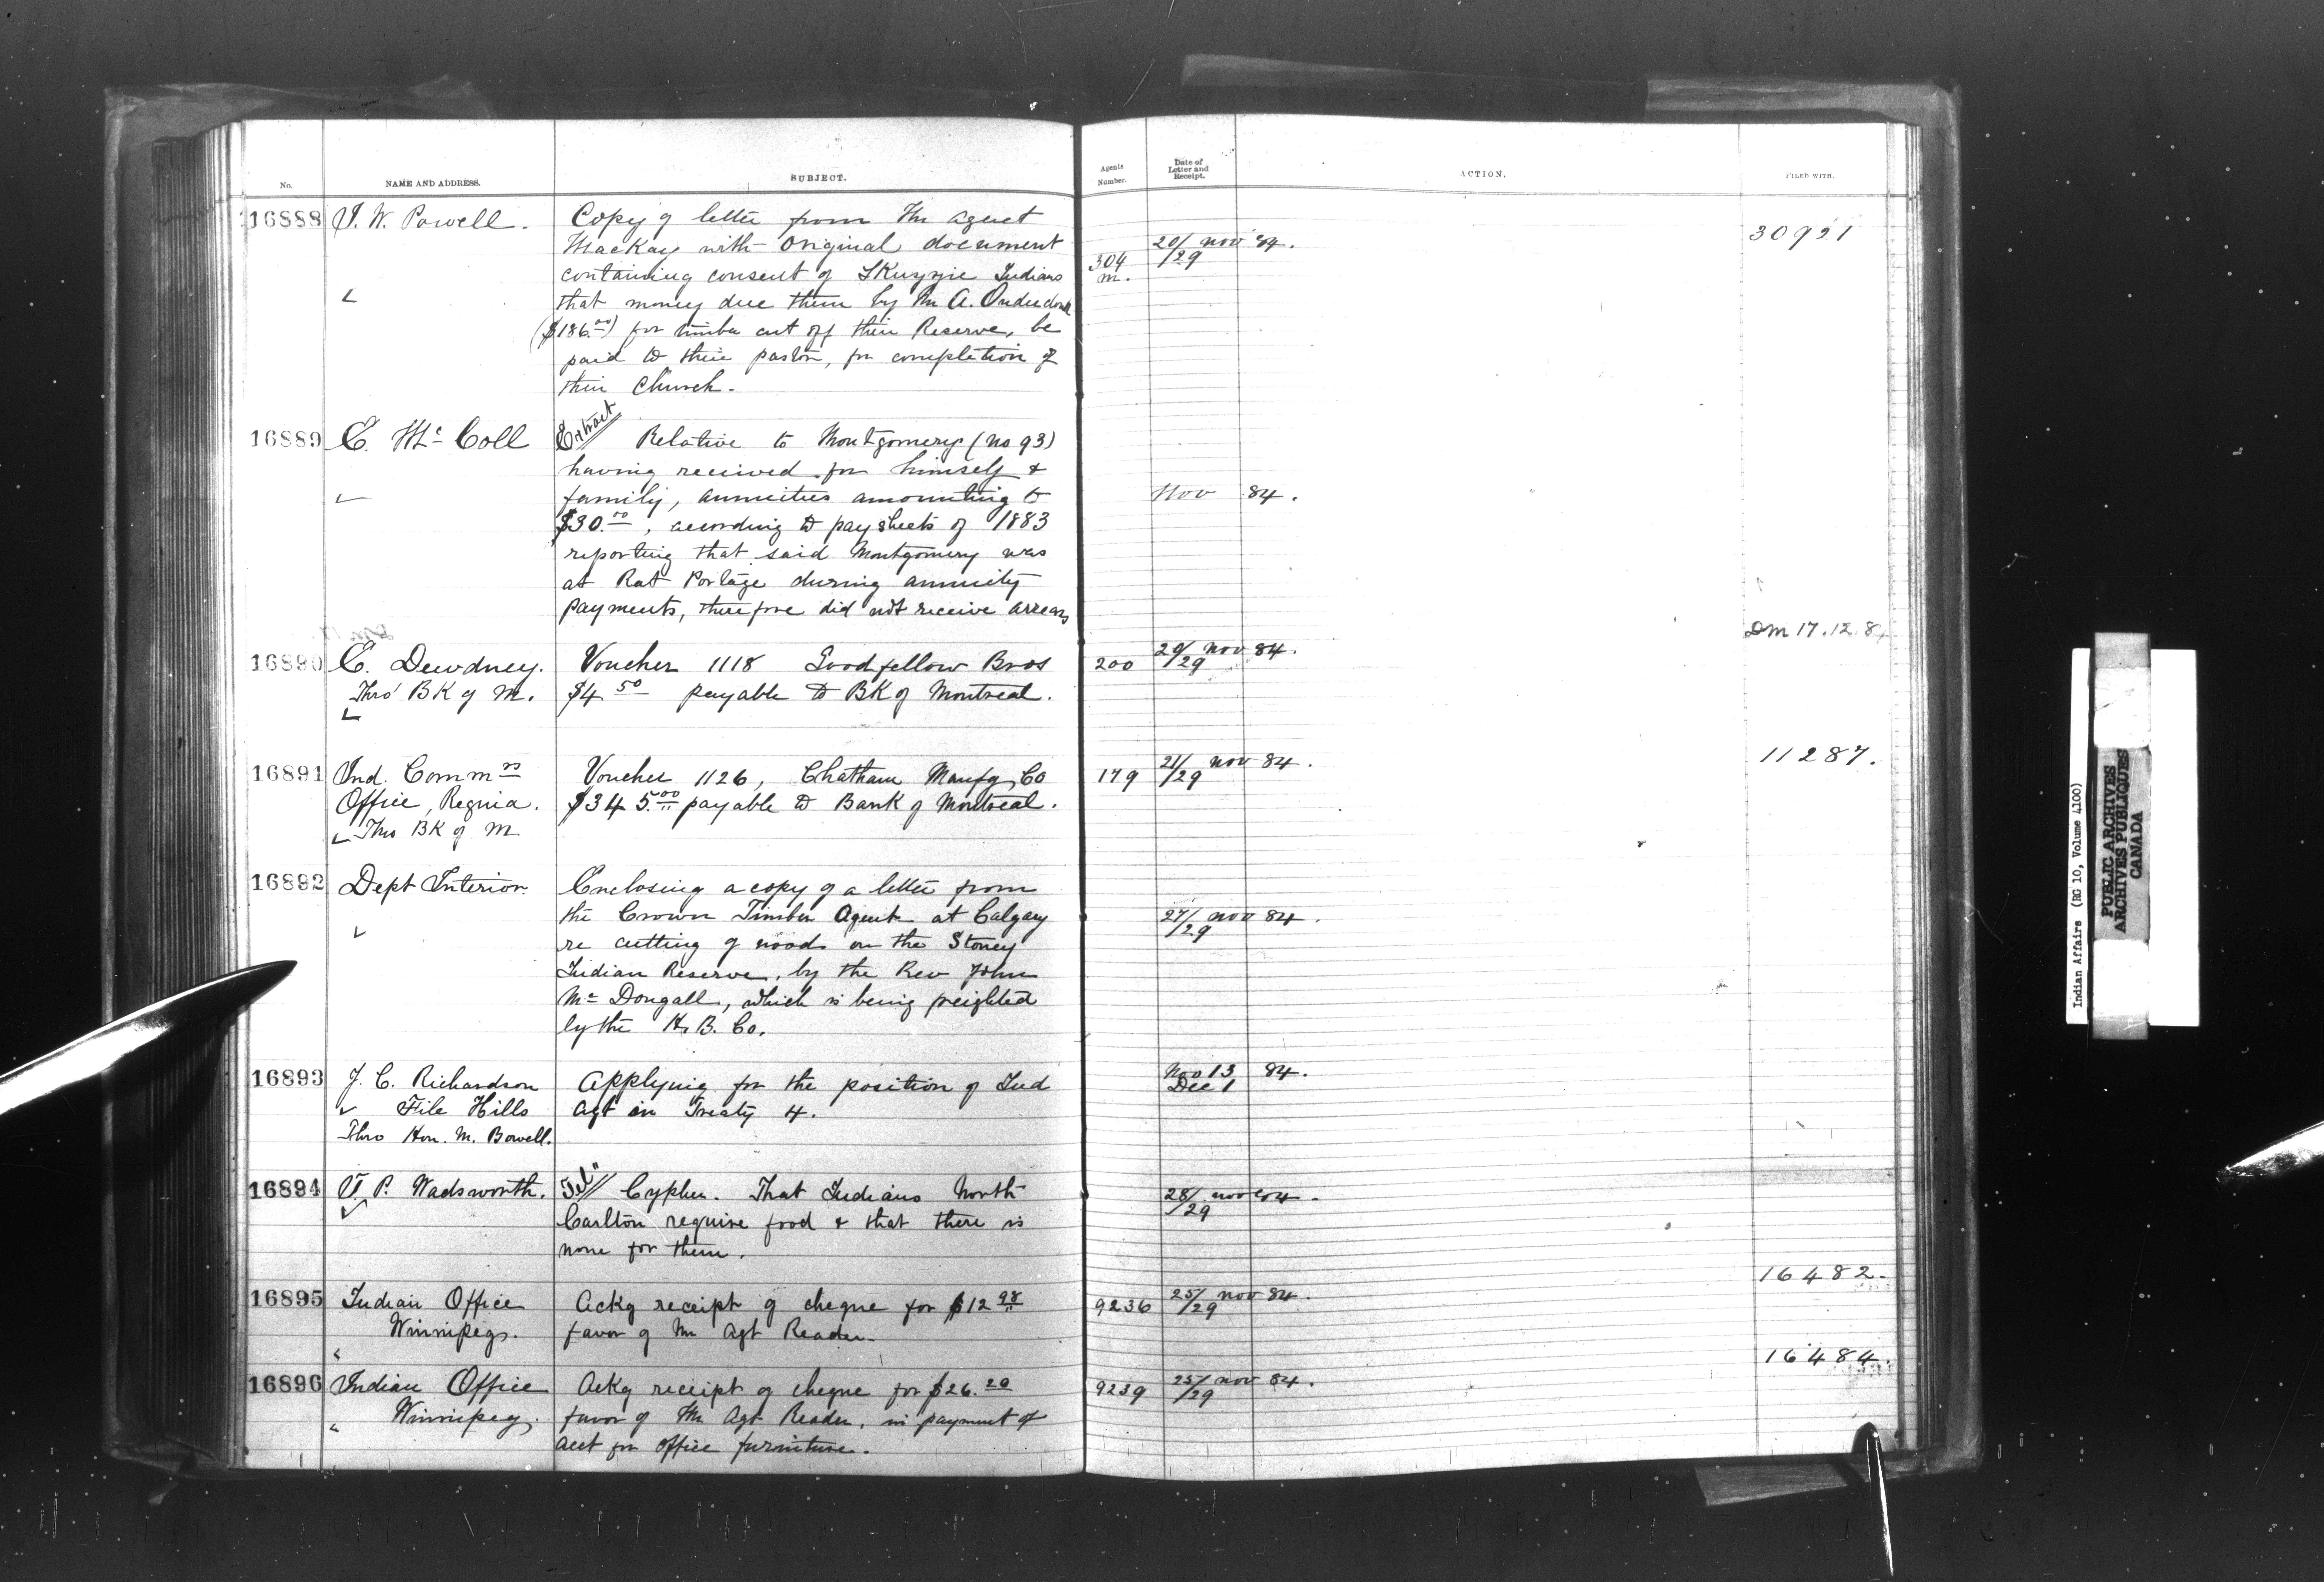 No. NAME AND ADDRESS. SUBJECT. Agents Number. Date of Letter and Receipt. ACTION. FILED WITH.
16888 I. W. Powell. Copy of letter from Mr Agent
Mackay with Original document
containing consent of Skuzzie Indians
that money due them by Mr A. Onderdonk
($186.00) for timber cut off their Reserve, be
paid to their pastor, for completion of
their Church.
304 m. 20/29 Nov 84. 30921
16889 E. McColl Extract Relative to Montgomery (No 93)
having received for himself &
family, annuities amounting to
$30.00, according to paysheets of 1883
reporting that said Montgomery was
at Rat Portage during annuity
payments, therefore did not receive arrears
Nov 84.
16890 E. Dewdney. Voucher 1118 Goodfellow Bros
Thro' BK of M. $4 50 payable to BK of Montreal.
200 20/29 Nov 84. DM 17.12.8
16891 Ind. Commrs Voucher 1126, Chatham Manfg Co
Office, Regina. $345.00 payable to Bank of Montreal.
Thro BK of M
179 21/29 Nov 84. 11287.
16892 Dept Interior. Enclosing a copy of a letter from
the Crown Timber Agent at Calgary
re cutting of woods on the Stoney
Indian Reserve, by the Rev John
McDougall, which is being freighted
by the H. B. Co.
27/29 Nov 84.
16893 J. C. Richardson Applying for the position of Ind
File Hills Agt in Treaty 4.
Thro Hon. M. Bowell.
Nov 13 84.
Dec 1
16894 T. P. Wadsworth. Tel// Cypher. That Indians North
Carlton require food & that there is
none for them.
28/29 Nov 84.
16895 Indian Office Ackg receipt of cheque for $12 98
Winnipeg. favor of Mr Agt Reader.
9236 25/29 Nov 84. 16482.
16896 Indian Office Ackg receipt of cheque for $26.20
Winnipeg. favor of Mr Agt Reader, in payment of
acct for office furniture.
9239 25/29 Nov 84. 16484.
Indian Affairs (RG 10, Volume 4100)
PUBLIC ARCHIVES
ARCHIVES PUBLIQUES
CANADA